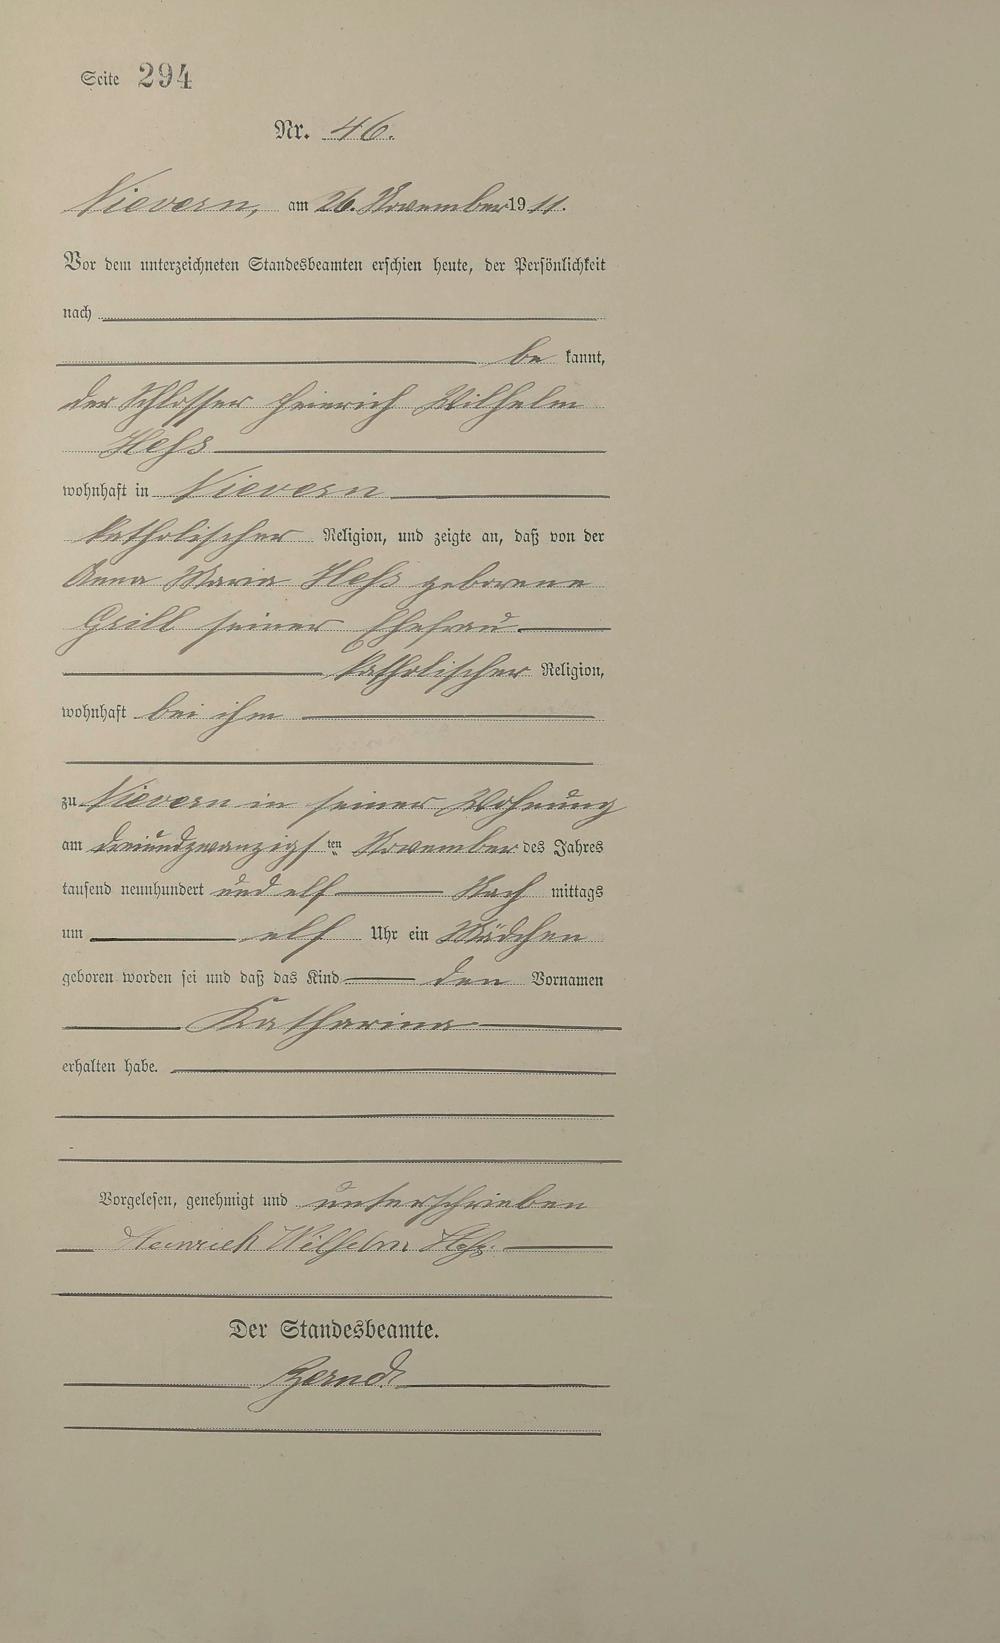 Seite 294
Nr. 46.
Nievern, am 26. November 1911.
Vor dem unterzeichneten Standesbeamten erschien heute, der Persönlichkeit
nach
be kannt,
der Schlosser Heinrich Wilhelm
Heß
wohnhaft in Nievern
katholischer Religion, und zeigte an, daß von der
Anna Maria Heß geborene
Grill seiner Ehefrau
katholischer Religion,
wohnhaft bei ihm
zu Nievern in seiner Wohnung
am dreiundzwanzigs ten November des Jahres
tausend neunhundert und elf Nach mittags
um elf Uhr ein Mädchen
geboren worden sei und daß das Kind den Vornamen
Katharina
erhalten habe.
Vorgelesen, genehmigt und unterschrieben
Heinrich Wilhelm Heß.
Der Standesbeamte.